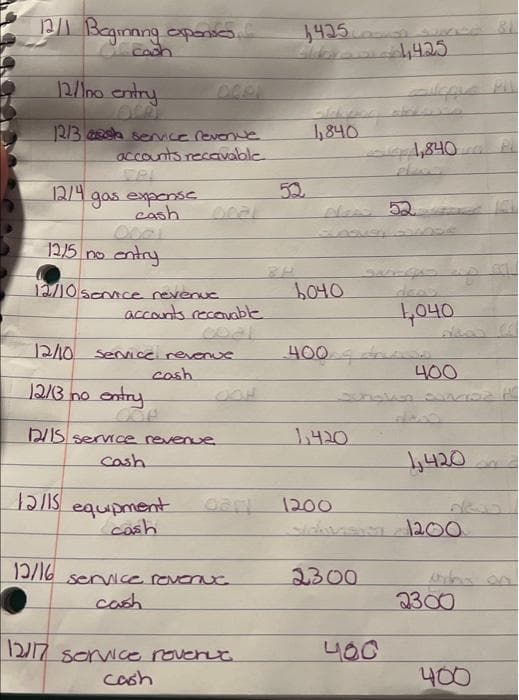 12/1 Beginning expenses 1,425
cash 1,425
12/1 no entry
12/3 service revenue 1,840
accounts recevable 1,840
12/4 gas expense 52
cash 52
12/5 no entry
12/10 service revenue 1,040
accounts recevable 1,040
12/10 service revenue 400
cash 400
12/13 no entry
12/15 service revenue 1,420
cash 1,420
12/15 equipment 1200
cash 1200
12/16 service revenue 2300
cash 2300
12/17 service revenue 400
cash 400